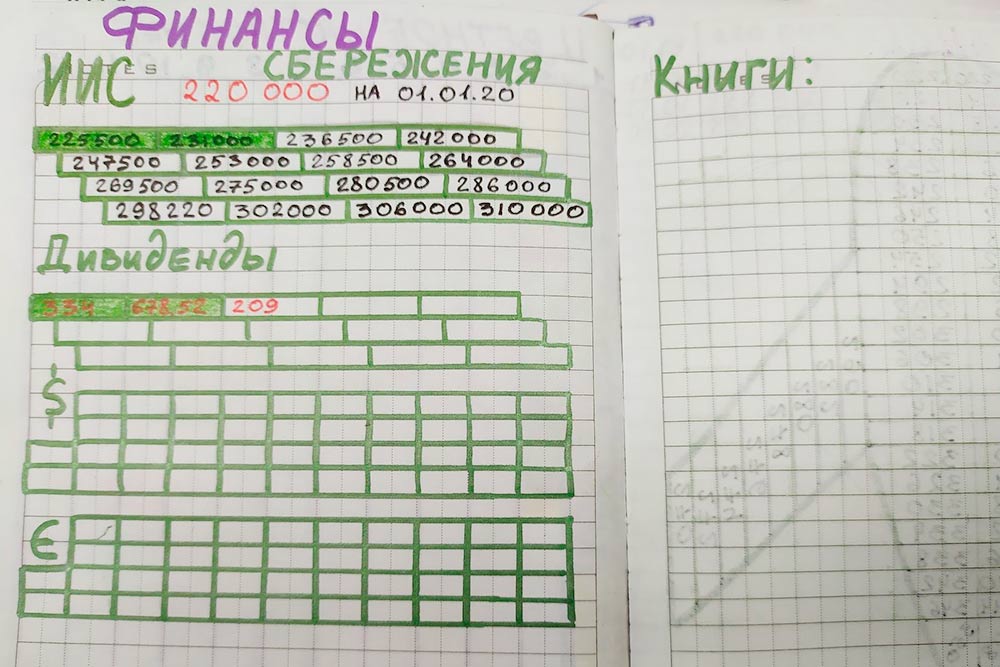 ФИНАНСЫ
ИИС СБЕРЕЖЕНИЯ
220 000 НА 01.01.20
225500 231000 236500 242000
247500 253000 258500 264000
269500 275000 280500 286000
298220 302000 306000 310000
Дивиденды
334 678,52 209
$
€
Книги: